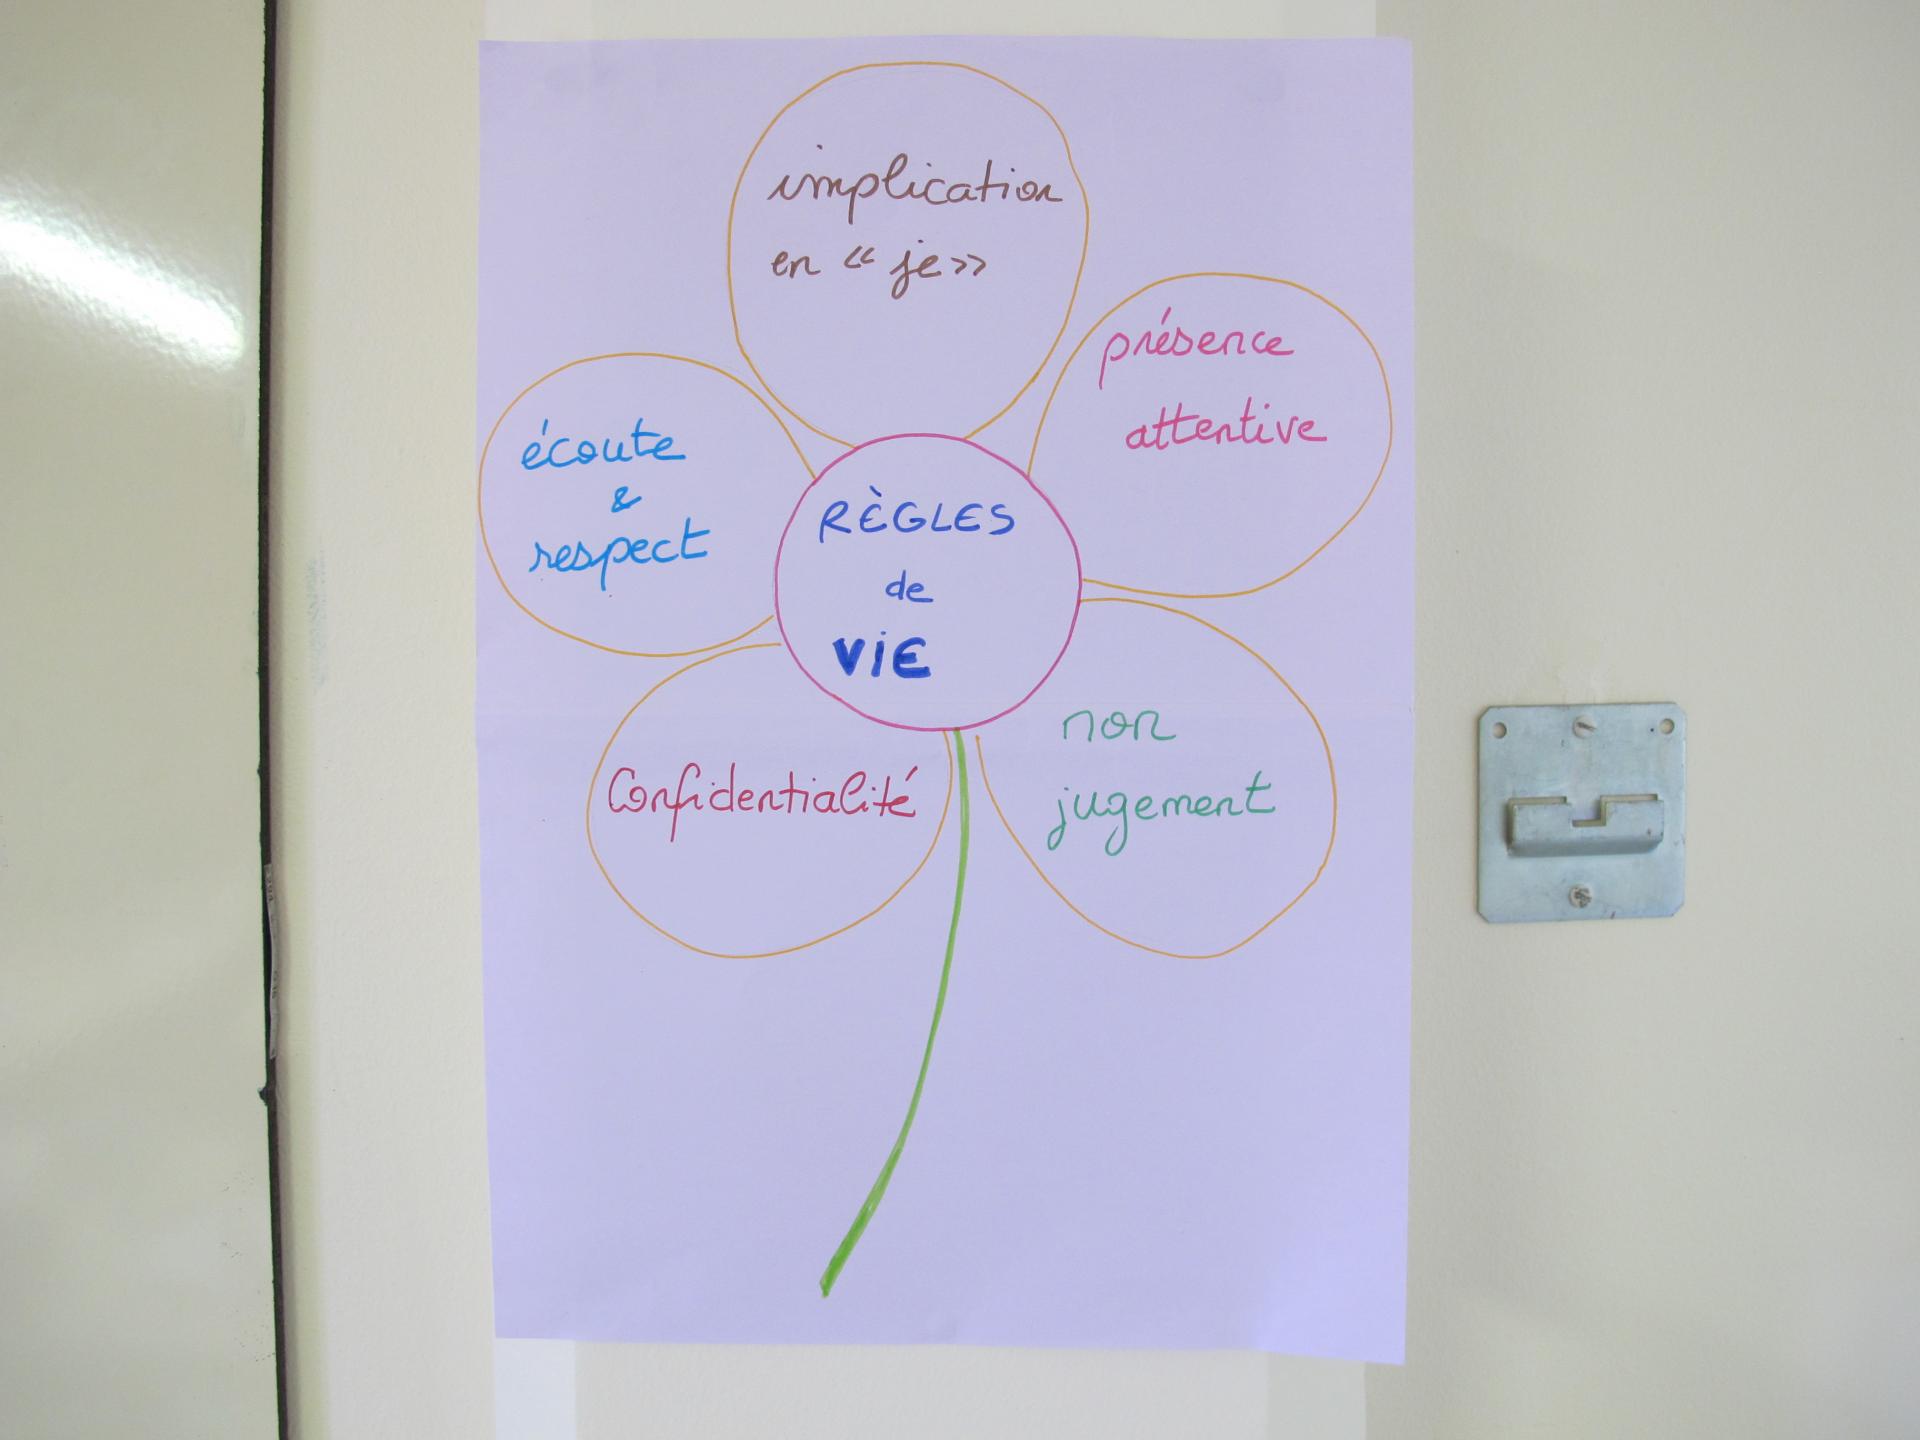 implication
en « je »
présence
attentive
écoute
&
respect
RÈGLES
de
ViE
Confidentialité
non
jugement